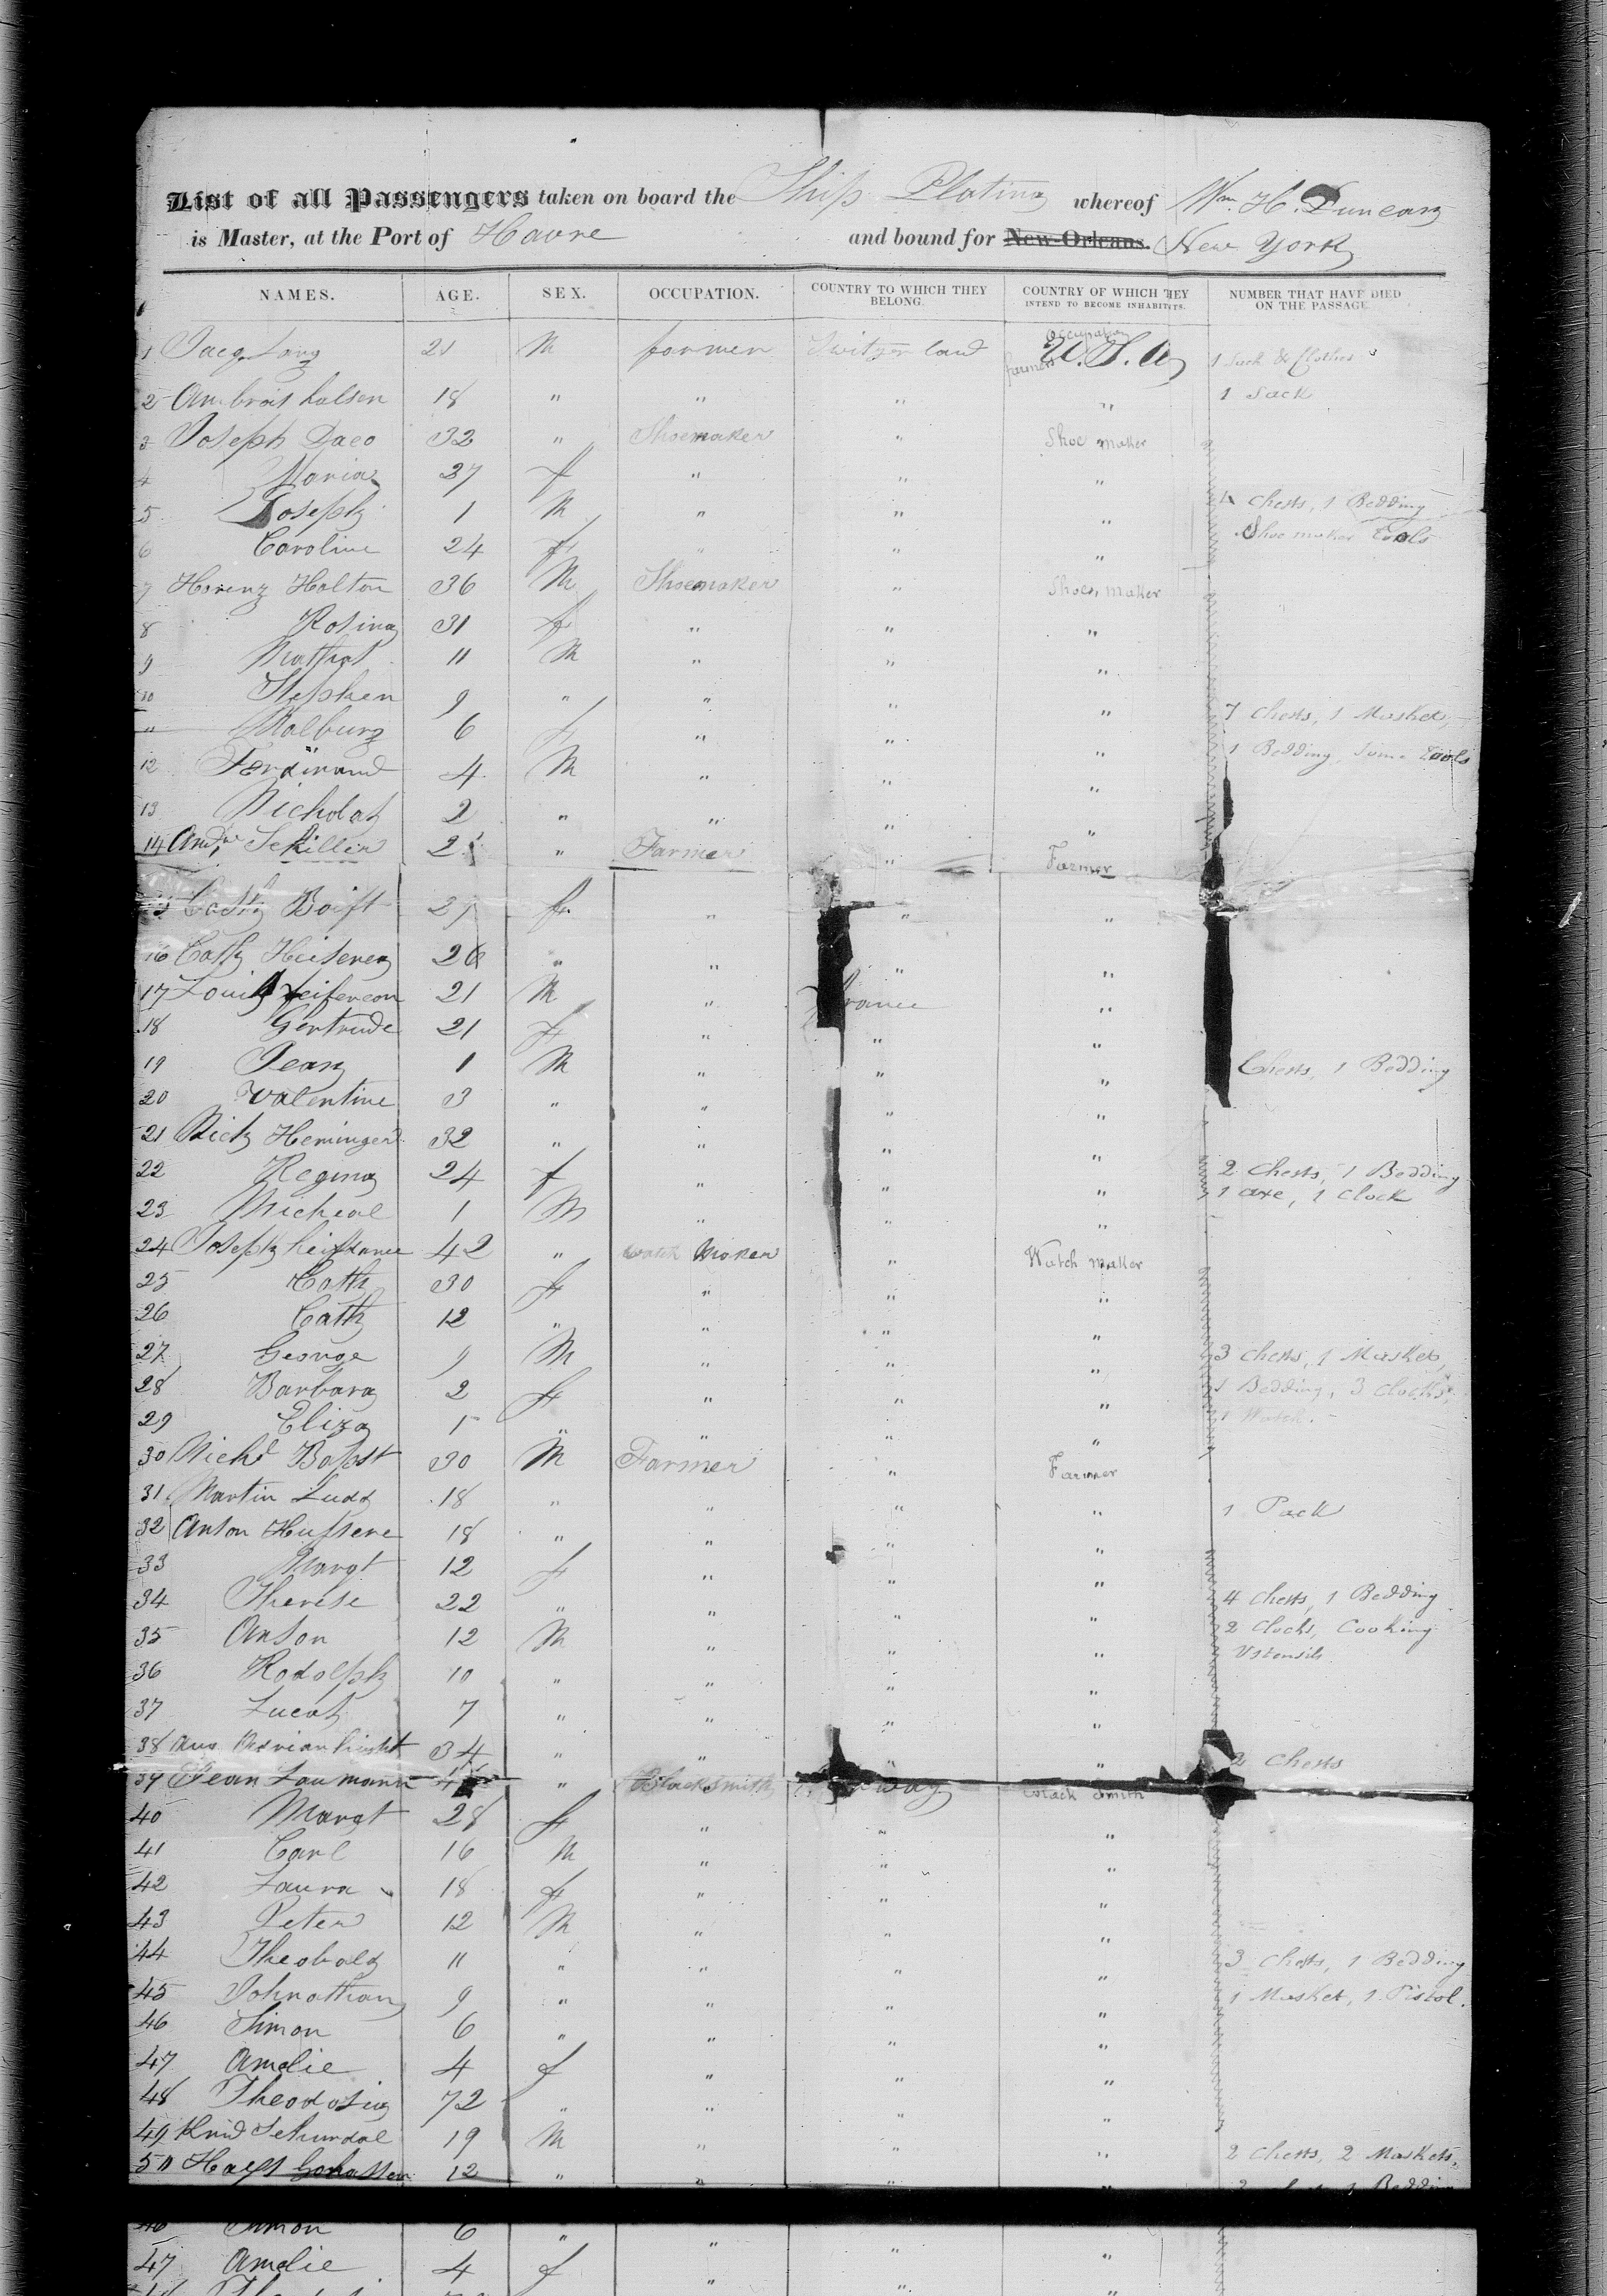 List of all Passengers taken on board the Ship Platina whereof Wm. H. Duncan
is Master, at the Port of Havre and bound for New-Orleans. New York
NAMES. AGE. SEX. OCCUPATION. COUNTRY TO WHICH THEY BELONG. COUNTRY OF WHICH THEY INTEND TO BECOME INHABITANTS. NUMBER THAT HAVE DIED ON THE PASSAGE
Occupation
1 Jacq. Lang 21 M farmer Switzerland farmer U.S.A 1 Sack & Clothes
2 Ambrois 18 " " " " 1 Sack
3 Joseph Daeo 32 " Shoemaker " Shoe maker
4 Maria 27 f " " "
5 Joseph 1 M " " " 4 Chests, 1 Bedding
6 Caroline 24 f " " " Shoe maker Tools
7 Horenz Holton 36 M Shoemaker " Shoe, maker
8 Rosina 31 f " " "
9 11 M " " "
10 Stephen 9 " " " " 7 Chests, 1 Musket,
" Walburg 6 f " " " 1 Bedding, Some Tools
12 Ferdinand 4 M " " "
13 Nicholas 2 " " " "
14 Andw Schiller " Farmer " Farmer
15 Cath Boist f " " "
16 Cath 26 " " " "
17 Louis 21 M " France "
18 Gertrude 21 f " " "
19 Jean 1 M " " " Chests, 1 Bedding
20 Valentine 3 " " " "
21 Heminger 32 " " " "
22 Regina 24 f " " " 2 Chests, 1 Bedding
23 Micheal 1 M " " " 1 axe, 1 Clock
24 Joseph 42 " Watch Maker " Watch Maker
25 Cath 30 f " " "
26 Cath 12 " " " "
27 George 9 M " " " 3 Chests, 1 Musket,
28 Barbara 2 f " " " 1 Bedding, 3 Clocks,
29 Eliza 1 " " " " 1 Watch.
30 Nichs Babst 30 M Farmer " Farmer
31 Martin Ludd 18 " " " " 1 Pack
32 Anton Hussere 18 " " " "
33 Margt 12 f " " "
34 Therese 22 " " " " 4 Chests, 1 Bedding
35 Anton 12 M " " " 2 Clocks, Cooking
36 Rodolph 10 " " " " Utensils
37 Lucas 7 " " " "
38 Aug. 34 " " " " 2 Chests
39 Jean Laumann " Blacksmith Norway Black Smith
40 Margt 28 f " " "
41 Carl 16 M " " "
42 Laura 18 f " " "
43 Peter 12 M " " "
44 Theobald 11 " " " " 3 Chests, 1 Bedding
45 Johnathan 9 " " " " 1 Musket, 1 Pistol.
46 Simon 6 " " " "
47 Amelie 4 f " " "
48 Theodosia 72 " " " "
49 Knud Schundal 19 M " " " 2 Chests, 2 Muskets,
50 12 " " " Bedding
46 Simon 6 " " " "
47 Amelie 4 f " " "